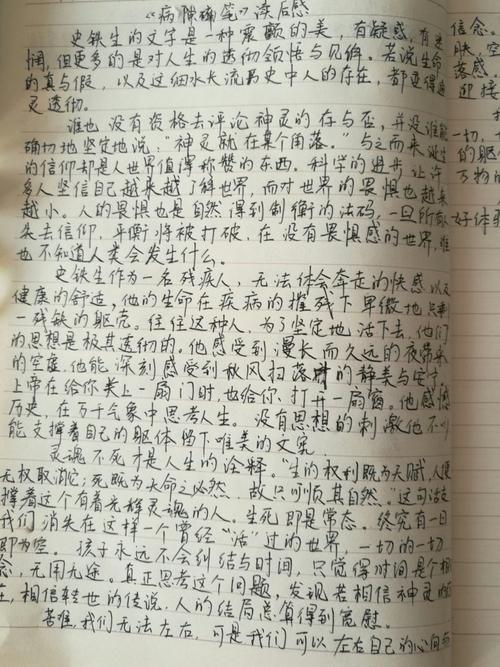 《病隙碎笔》读后感
史铁生的文字是一种震颤的美，有凝感，有迷
惘，但更多的是对人生的透彻领悟与见解。若说生命
的真与假，以及这细水长流历史中人的存在，都变得通
灵透彻。
谁也没有资格去评论神灵的存与否，并没谁能
确切地坚定地说：“神灵就在某个角落。”与之而来诞生
的信仰却是人世界值得称赞的东西。科学的进步让许
多人坚信自己越来越了解世界，而对世界的畏惧也越来
越小。人的畏惧也是自然得到制衡的法码，一旦所有
失去信仰，平衡将被打破，在没有畏惧感的世界，谁
也不知道人类会发生什么。
史铁生作为一名残疾人，无法体会奔走的快感以及
健康的舒适，他的生命在疾病的摧残下卑微地只剩
一残缺的躯壳。往往这种人，为了坚定地活下去，他们
的思想是极其透彻的。他感受到漫长而久远的夜带来
的空虚，他能深刻感受到秋风扫落叶时的静美与安宁
上帝在给你关上一扇门时，也给你打开一扇窗。他感慨
历史，在万千气象中思考人生。没有思想的刺激他不可
能支撑着自己的躯体留下唯美的文字
灵魂不死才是人生的注释。“生的权利既为天赋，人便
无权取消它；死既为天命之必然，故只可顺其自然。”这句话
撑着这个有着光辉灵魂的人。生死即是常态。终究有一日
我们消失在这样一个曾经“活”过的世界，一切的一切
即为空。孩子永远不会纠结与时间，只觉得时间是个
念，无用无途。真正思考这个问题，发现若相信神灵的
相信转世的传说，人的结局总值得到宽慰。
苦难，我们无法左右，可是我们可以左右自己的心间
信念。
肤，空
落感
迎接
一切，
的躯
万物的
好体